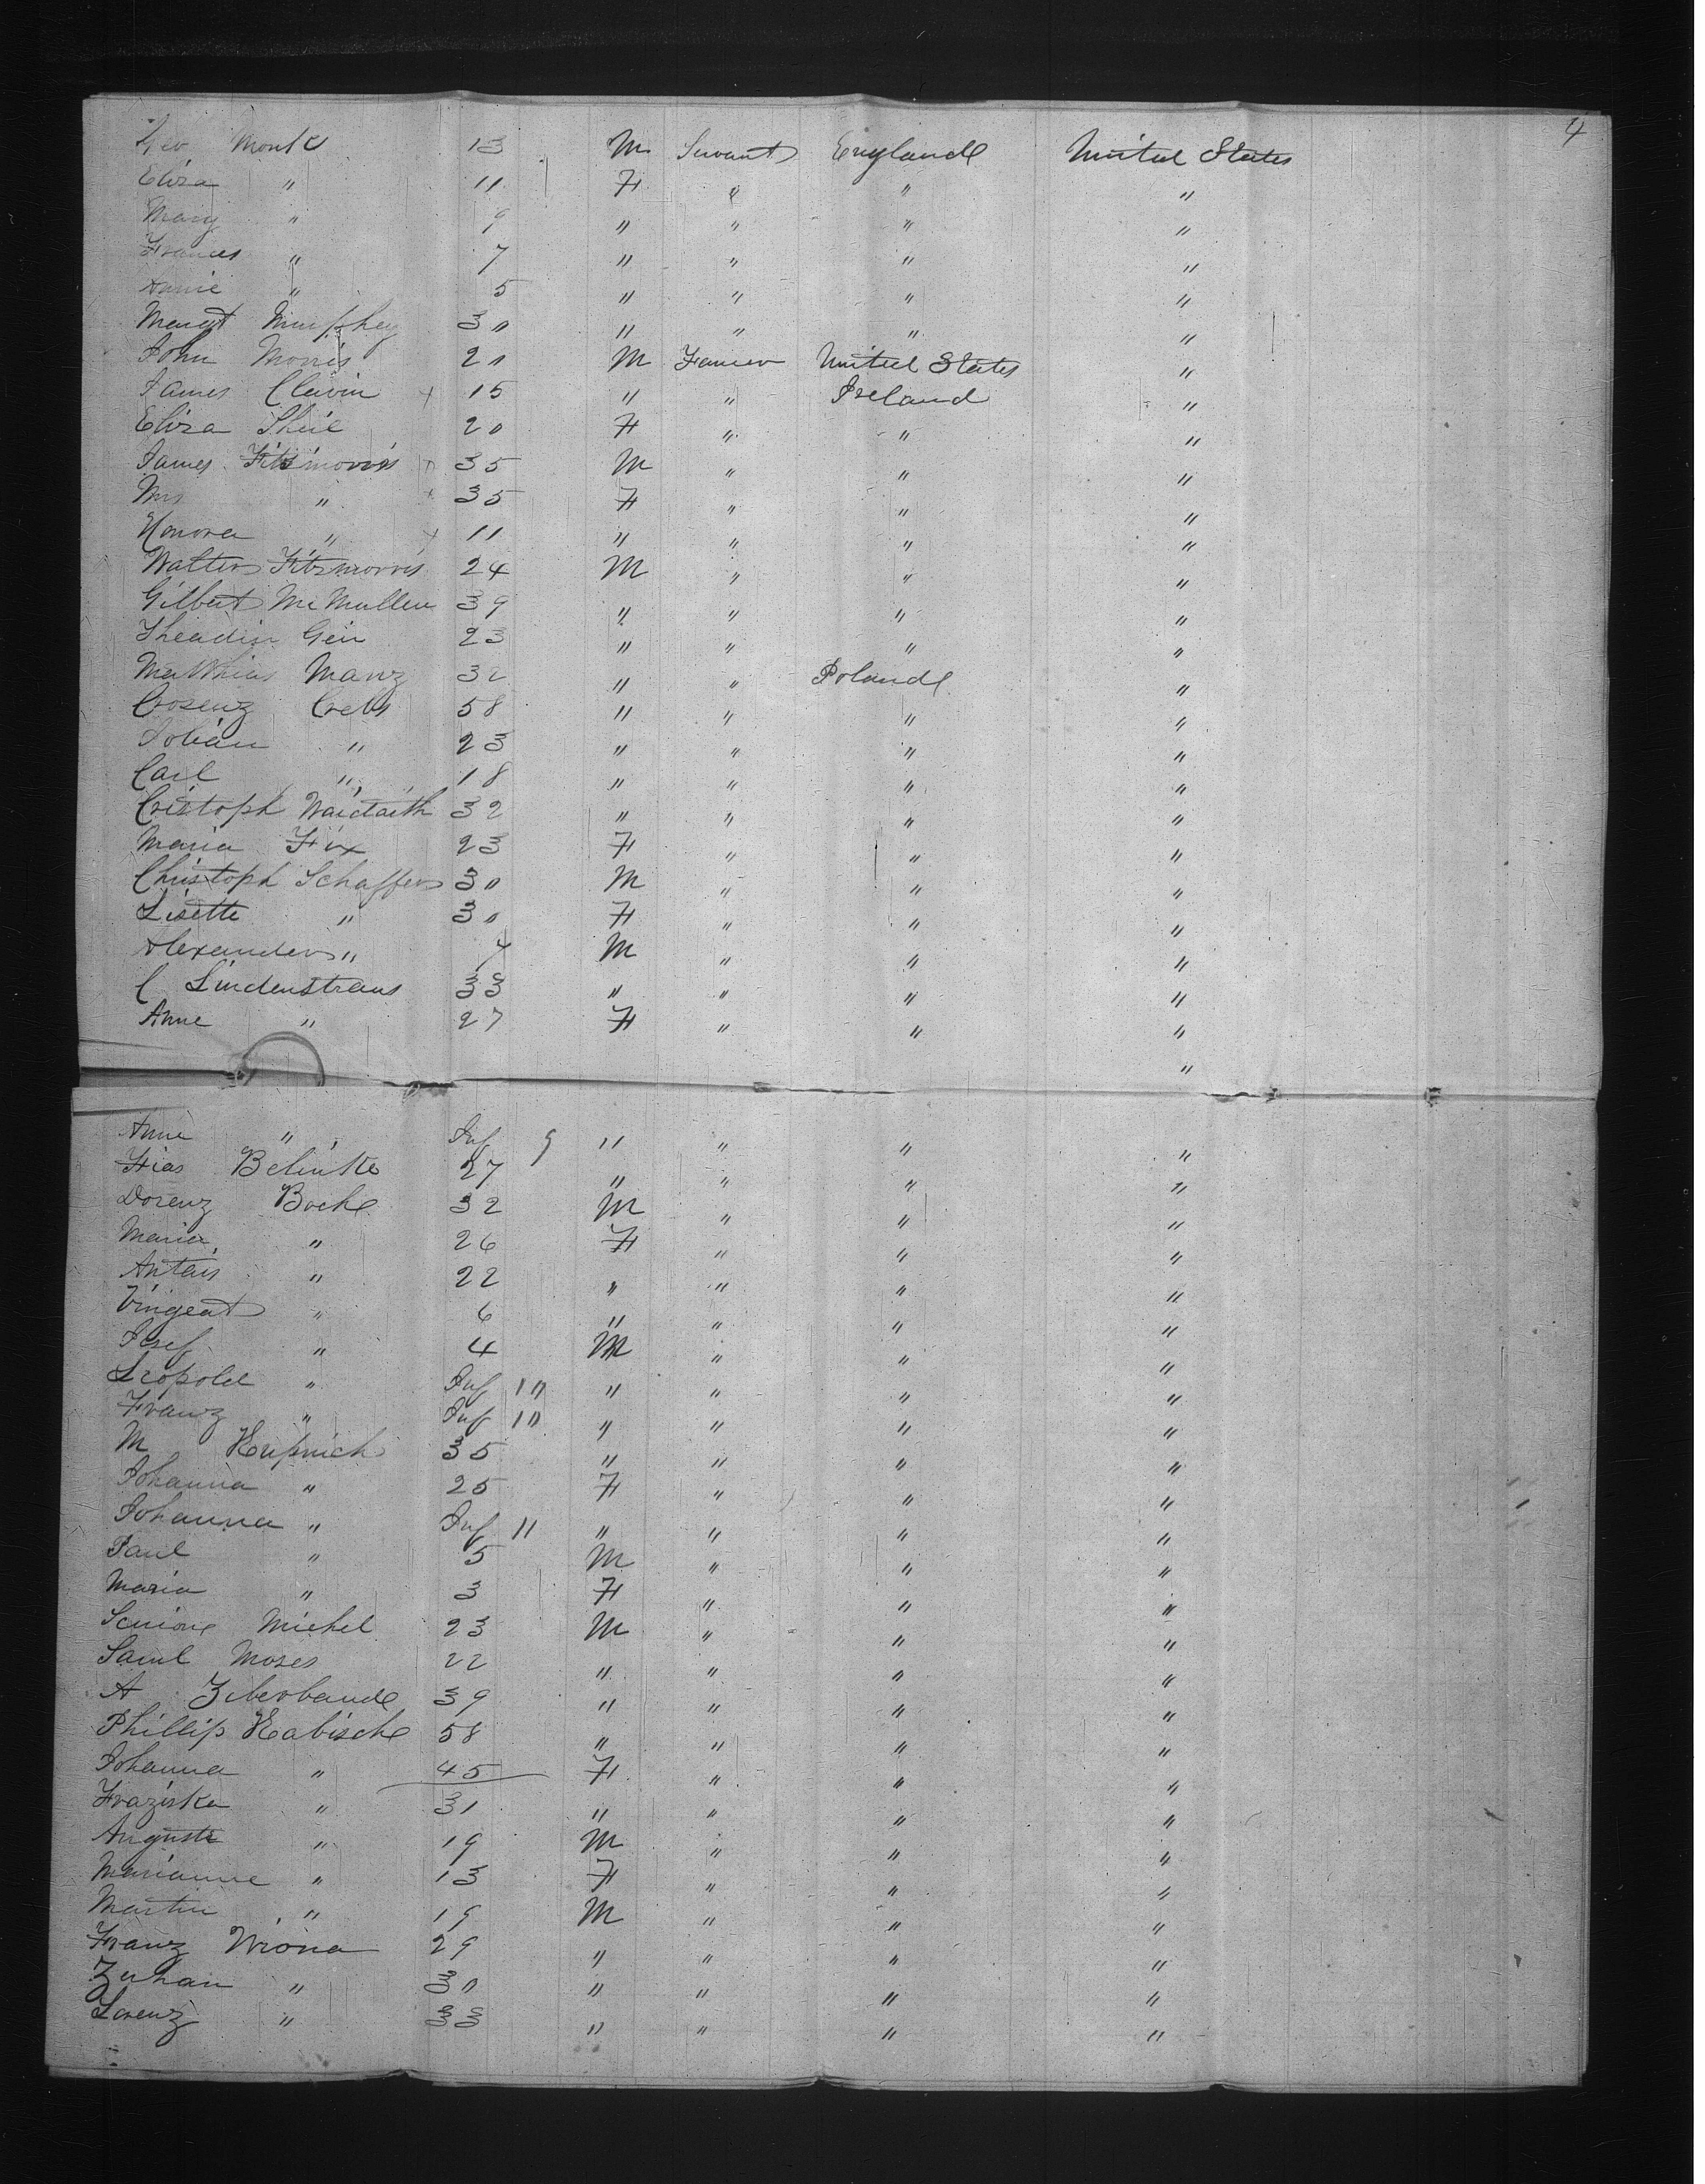 4
Geo Monk 13 M Servant England United States
Eliza " 11 F " " "
Mary " 9 " " " "
Frances " 7 " " " "
Annie " 5 " " " "
Margt Murphey 30 " " " "
John Morris 20 M Farmer United States "
James Clavin + 15 " " Ireland "
Eliza Sheil 20 F " " "
James Fitzmorris + 35 M " " "
Mrs " + 35 F " " "
Honora " + 11 " " " "
Walter Fitzmorris 24 M " " "
Gilbert McMullen 39 " " " "
23 " " " "
Matthias Manz 32 " " Poland "
Crosenz Crebs 58 " " " "
Johan " 23 " " " "
Carl " 18 " " " "
Cristoph 32 " " " "
Maria Fix 23 F " " "
Christoph Schaffer 30 M " " "
Lisette " 30 F " " "
Alexander " 4 M " " "
C Lindenstraus 33 " " " "
Anne " 27 F " " "
"
Anne " Inf 9 " " " "
27 " " " "
Dorenz Bock 32 M " " "
Maria " 26 F " " "
22 " " " "
" 6 " " " "
Josef " 4 M " " "
Leopold " Inf 10 " " " "
Franz " Inf 10 " " " "
M 35 " " " "
Johanna " 25 F " " "
Johanna " Inf 11 " " " "
Paul " 5 M " " "
Maria " 3 F " " "
Michel 23 M " " "
Saml Moses 22 " " " "
A Zilverbande 39 " " " "
Phillip Kabische 58 " " " "
Johanna " 45 F " " "
Fraziska " 31 " " " "
Auguste " 19 M " " "
Marianne " 13 F " " "
Martin " 19 M " " "
Franz Wrona 29 " " " "
" 30 " " " "
Lorenz " 33 " " " "